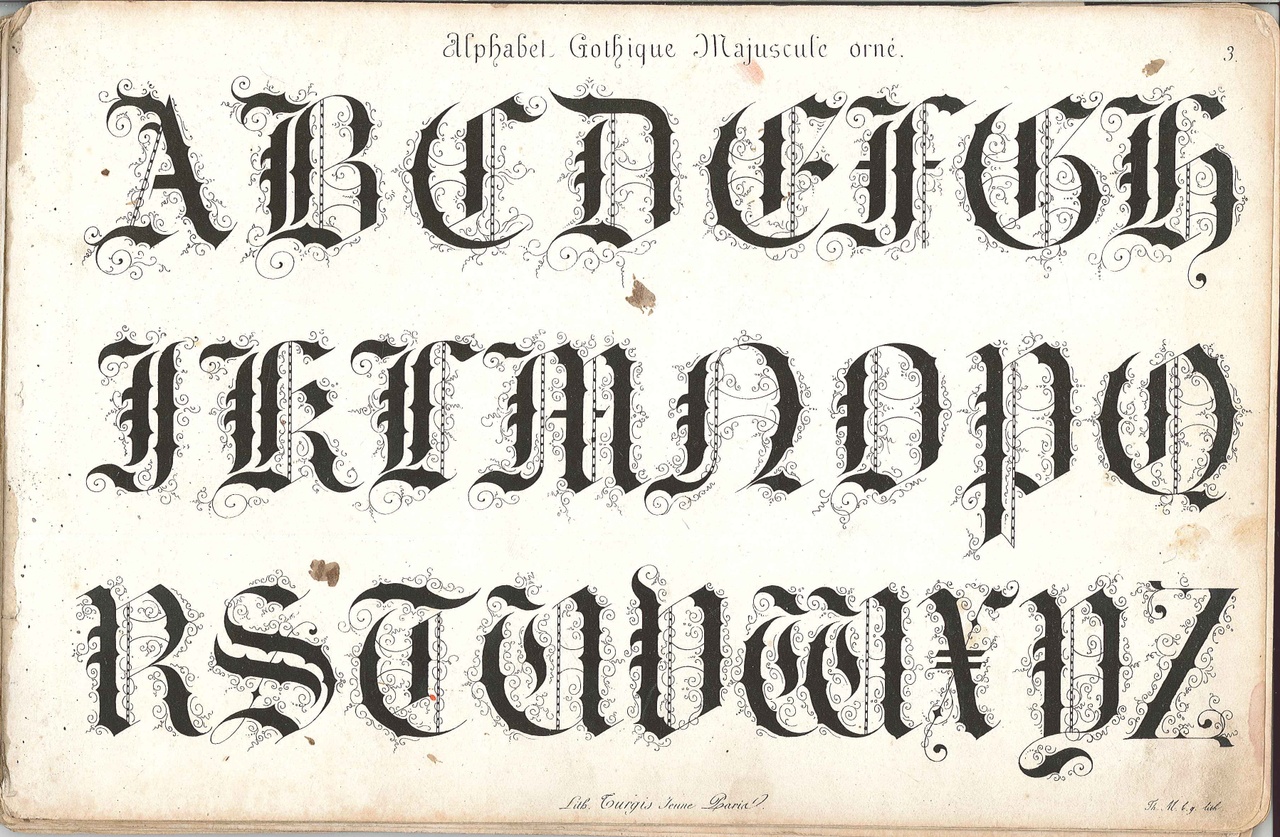 Alphabet Gothique Majuscule orné.
3.
A B C D E F G H
I K L M N O P Q
R S T U V W X Y Z
Lith. Turgis Jeune Paris